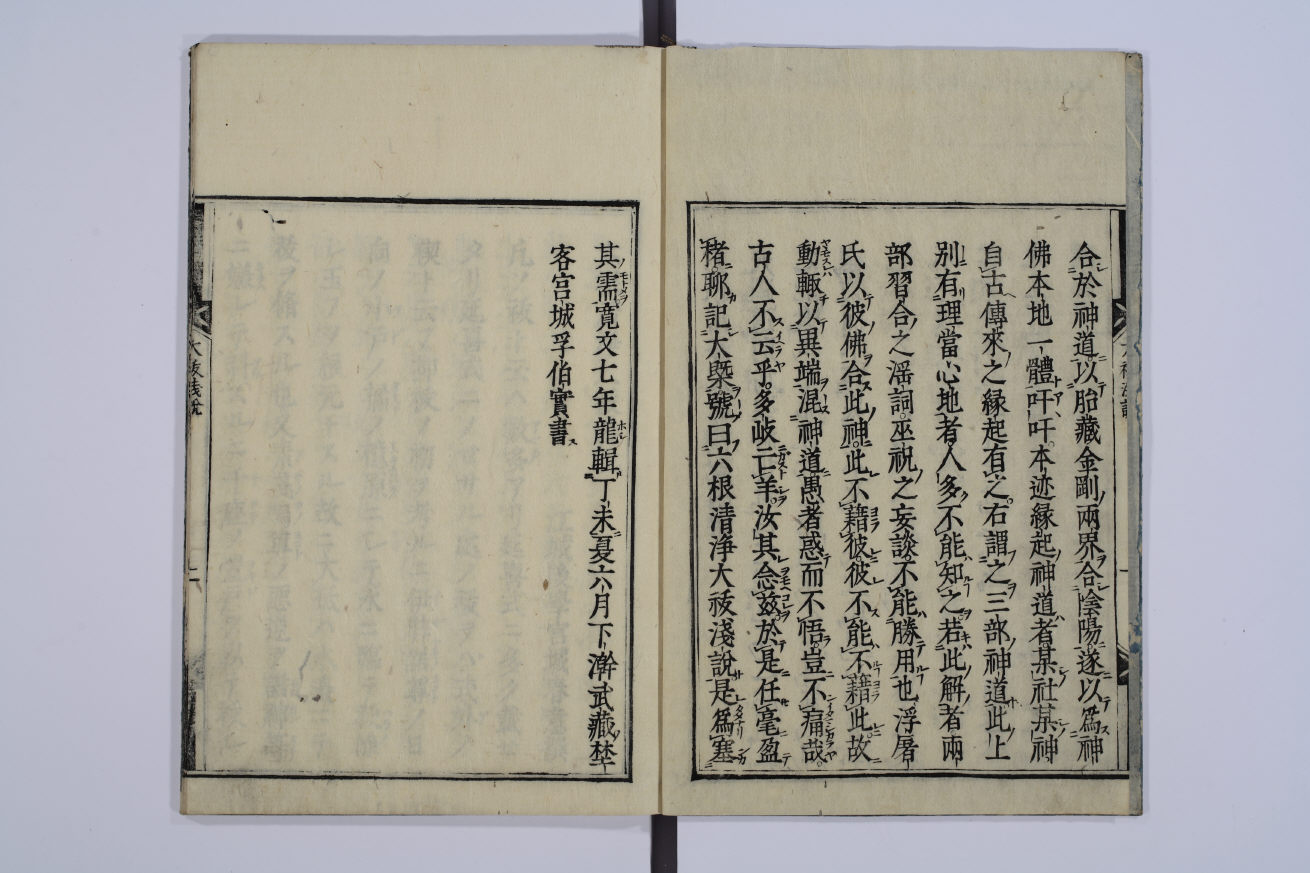 合於神道以胎藏金剛兩界合陰陽遂以爲神
佛本地一體吁吁本迹緣起神道者某社某神
自古傳來之縁起有之右謂之三部神道此上
別有理當心地者人多不能知之若此解者兩
部習合之滛詞巫祝之妄談不能勝用也浮屠
氏以彼佛合此神此不藉彼彼不能不藉此故
動輙以異端混神道愚者惑而不悟豈不痛哉
古人不云乎多岐亡羊汝其念茲於是任毫盈
楮聊記大槩號曰六根清浄大祓淺說是爲塞
其需寛文七年龍輯丁未夏六月下澣武藏埜
客宮城孚伯實書
大祓淺說